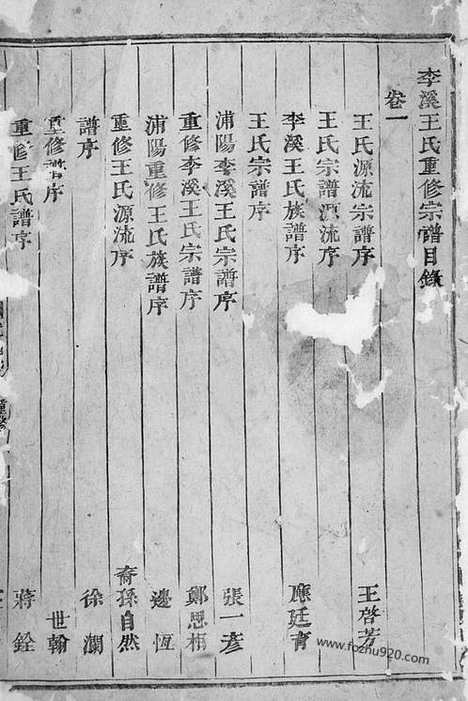 李溪王氏重修宗譜目錄
卷一
王氏源流宗譜序 王啓芳
王氏宗譜源流序
李溪王氏族譜序 應廷育
王氏宗譜序
浦陽李溪王氏宗譜序 張一彥
重修李溪王氏宗譜序 鄭思相
浦陽重修王氏族譜序 邊恆
重修王氏源流序 裔孫自然
譜序 徐瀾
重修譜序 世翰
重修王氏譜序 蔣銓
重修
www.fozhu920.com